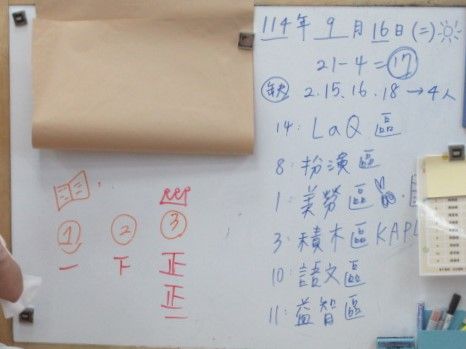 114年 9月 16日 (二)
21-4=17
缺 2.15.16.18→4人
14: LaQ 區
8: 扮演區
1: 美勞區
3: 積木區 KAPL
10: 語文區
11: 益智區
1 2 3
一 下 正
正
一